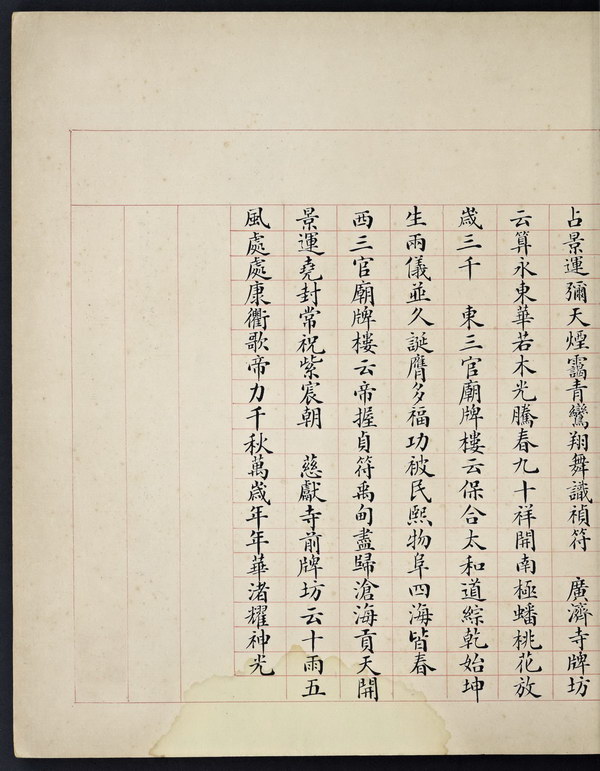 占景運彌天煙靄青鸞翔舞識禎符　廣濟寺牌坊
云算永東華若木光騰春九十祥開南極蟠桃花放
歲三千　東三官廟牌樓云保合太和道綜乾始坤
生兩儀並久誕膺多福功被民熙物阜四海皆春
西三官廟牌樓云帝握貞符禹甸盡歸滄海貢天開
景運堯封常祝紫宸朝　慈獻寺前牌坊云十雨五
風處處康衢歌帝力千秋萬歲年年華渚耀神光